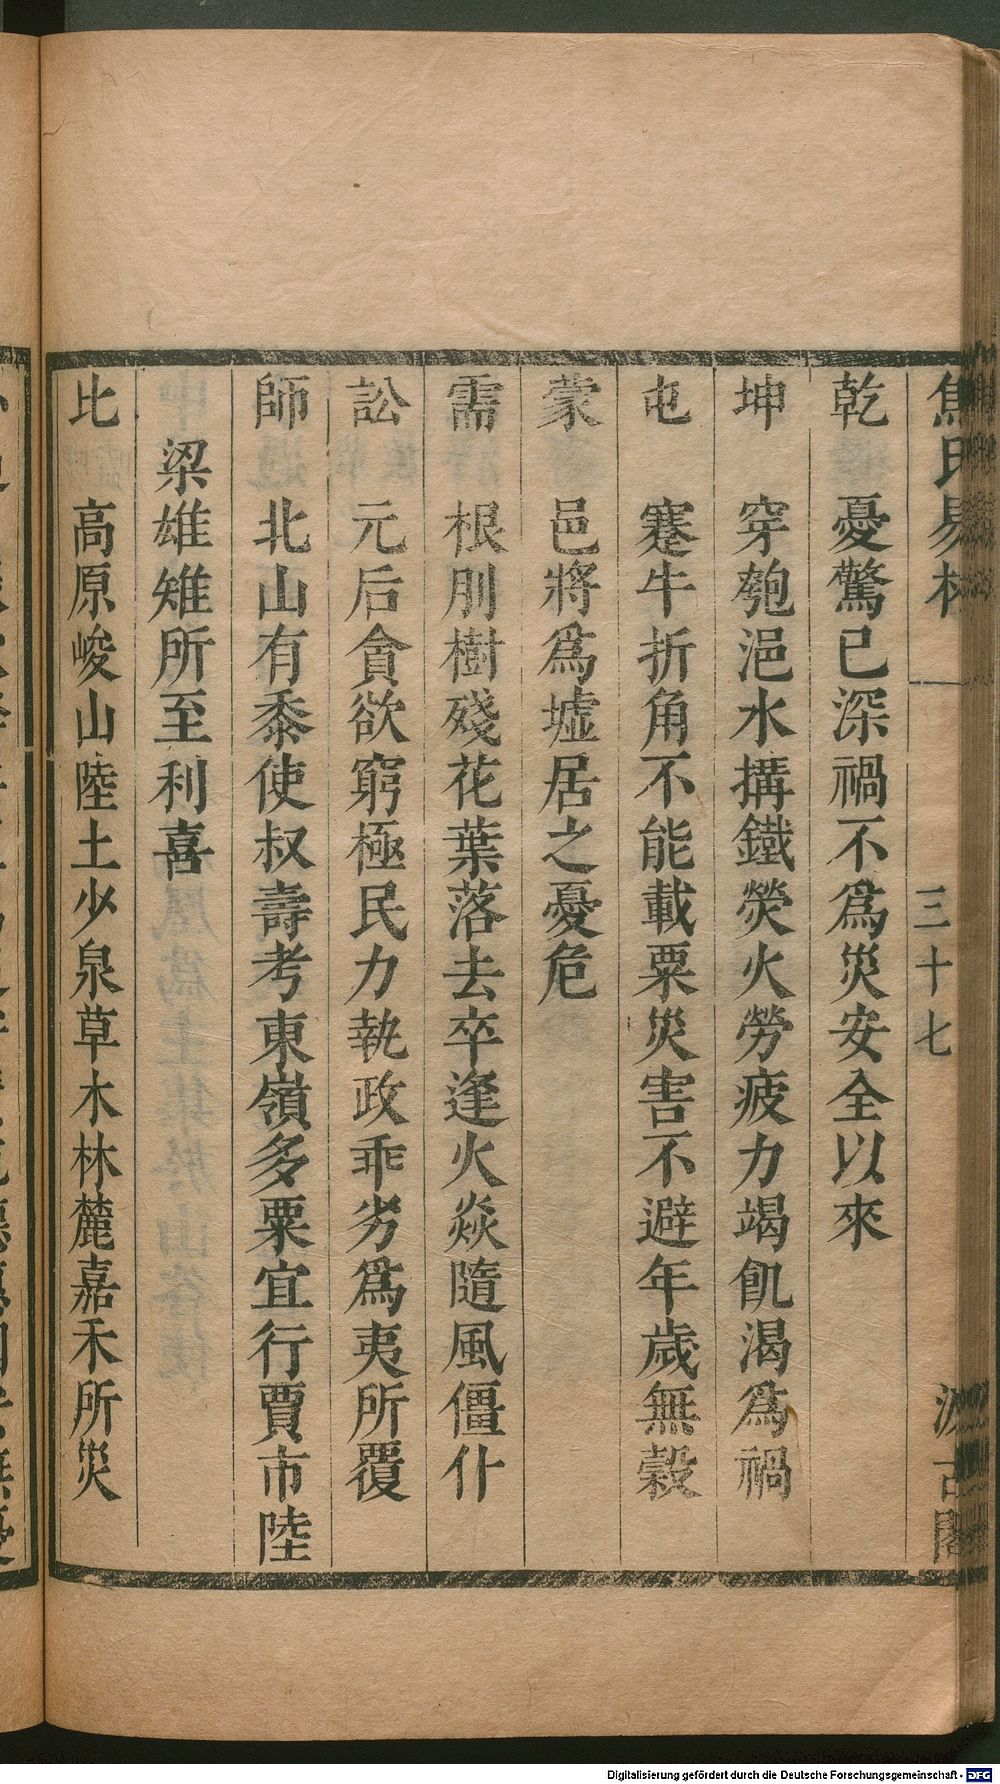 焦氏易林
三十七
汲古閣
乾 憂驚已深禍不爲災安全以來
坤 穿匏浥水搆鐵熒火勞疲力竭飢渴爲禍
屯 蹇牛折角不能載粟災害不避年歲無穀
蒙 邑將爲墟居之憂危
需 根刖樹殘花葉落去卒逢火焱隨風僵仆
訟 元后貪欲窮極民力執政乖劣爲夷所覆
師 北山有黍使叔壽考東嶺多粟宜行賈市陸
梁雄雉所至利喜
比 高原峻山陸土少泉草木林麓嘉禾所災
Digitalisierung gefördert durch die Deutsche Forschungsgemeinschaft - DFG